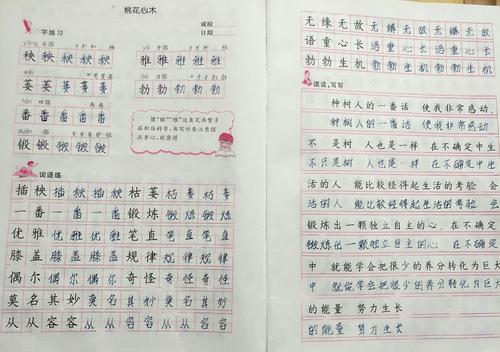 桃花心木
成绩
日期
字练习
yāng 禾部
秧 秧 秧 秧 秧
yǎ 隹部
雅 雅 雅 雅 雅
wěi
萎 萎 萎 萎 萎
bó 力部
勃 勃 勃 勃 勃
fān 田部
番 番 番 番 番
duàn 部
锻 锻 锻 锻 锻
像“锻”“雅”这类笔画繁多
词语练
插秧 插秧 插秧 枯萎 枯萎 枯萎
一番 一番 一番 锻炼 锻炼 锻炼
优雅 优雅 优雅 笔直 笔直 笔直
膝盖 膝盖 膝盖 规律 规律 规律
偶尔 偶尔 偶尔 奇怪 奇怪 奇怪
莫名其妙 莫名其妙 莫名其妙
从从容容 从从容容 从从容容
无缘无故 无缘无故 无缘无故
语重心长 语重心长 语重心长
勃勃生机 勃勃生机 勃勃生机
读读,写写
种树人的一番话 使我非常感动
种树人的一番话 使我非常感动
不是树 人也是一样 在不确定中生
不只是树 人也是一样 在不确定中生
活的人 能比较经得起生活的考验 会
活的人 能比较经得起生活的考验 会
锻炼出一颗独立自主的心 在不确定
锻炼出一颗独立自主的心 在不确定
中 就能学会把很少的养分转化为巨大
中 就能学会把很少的养分转化为巨大
的能量 努力生长
的能量 努力生长